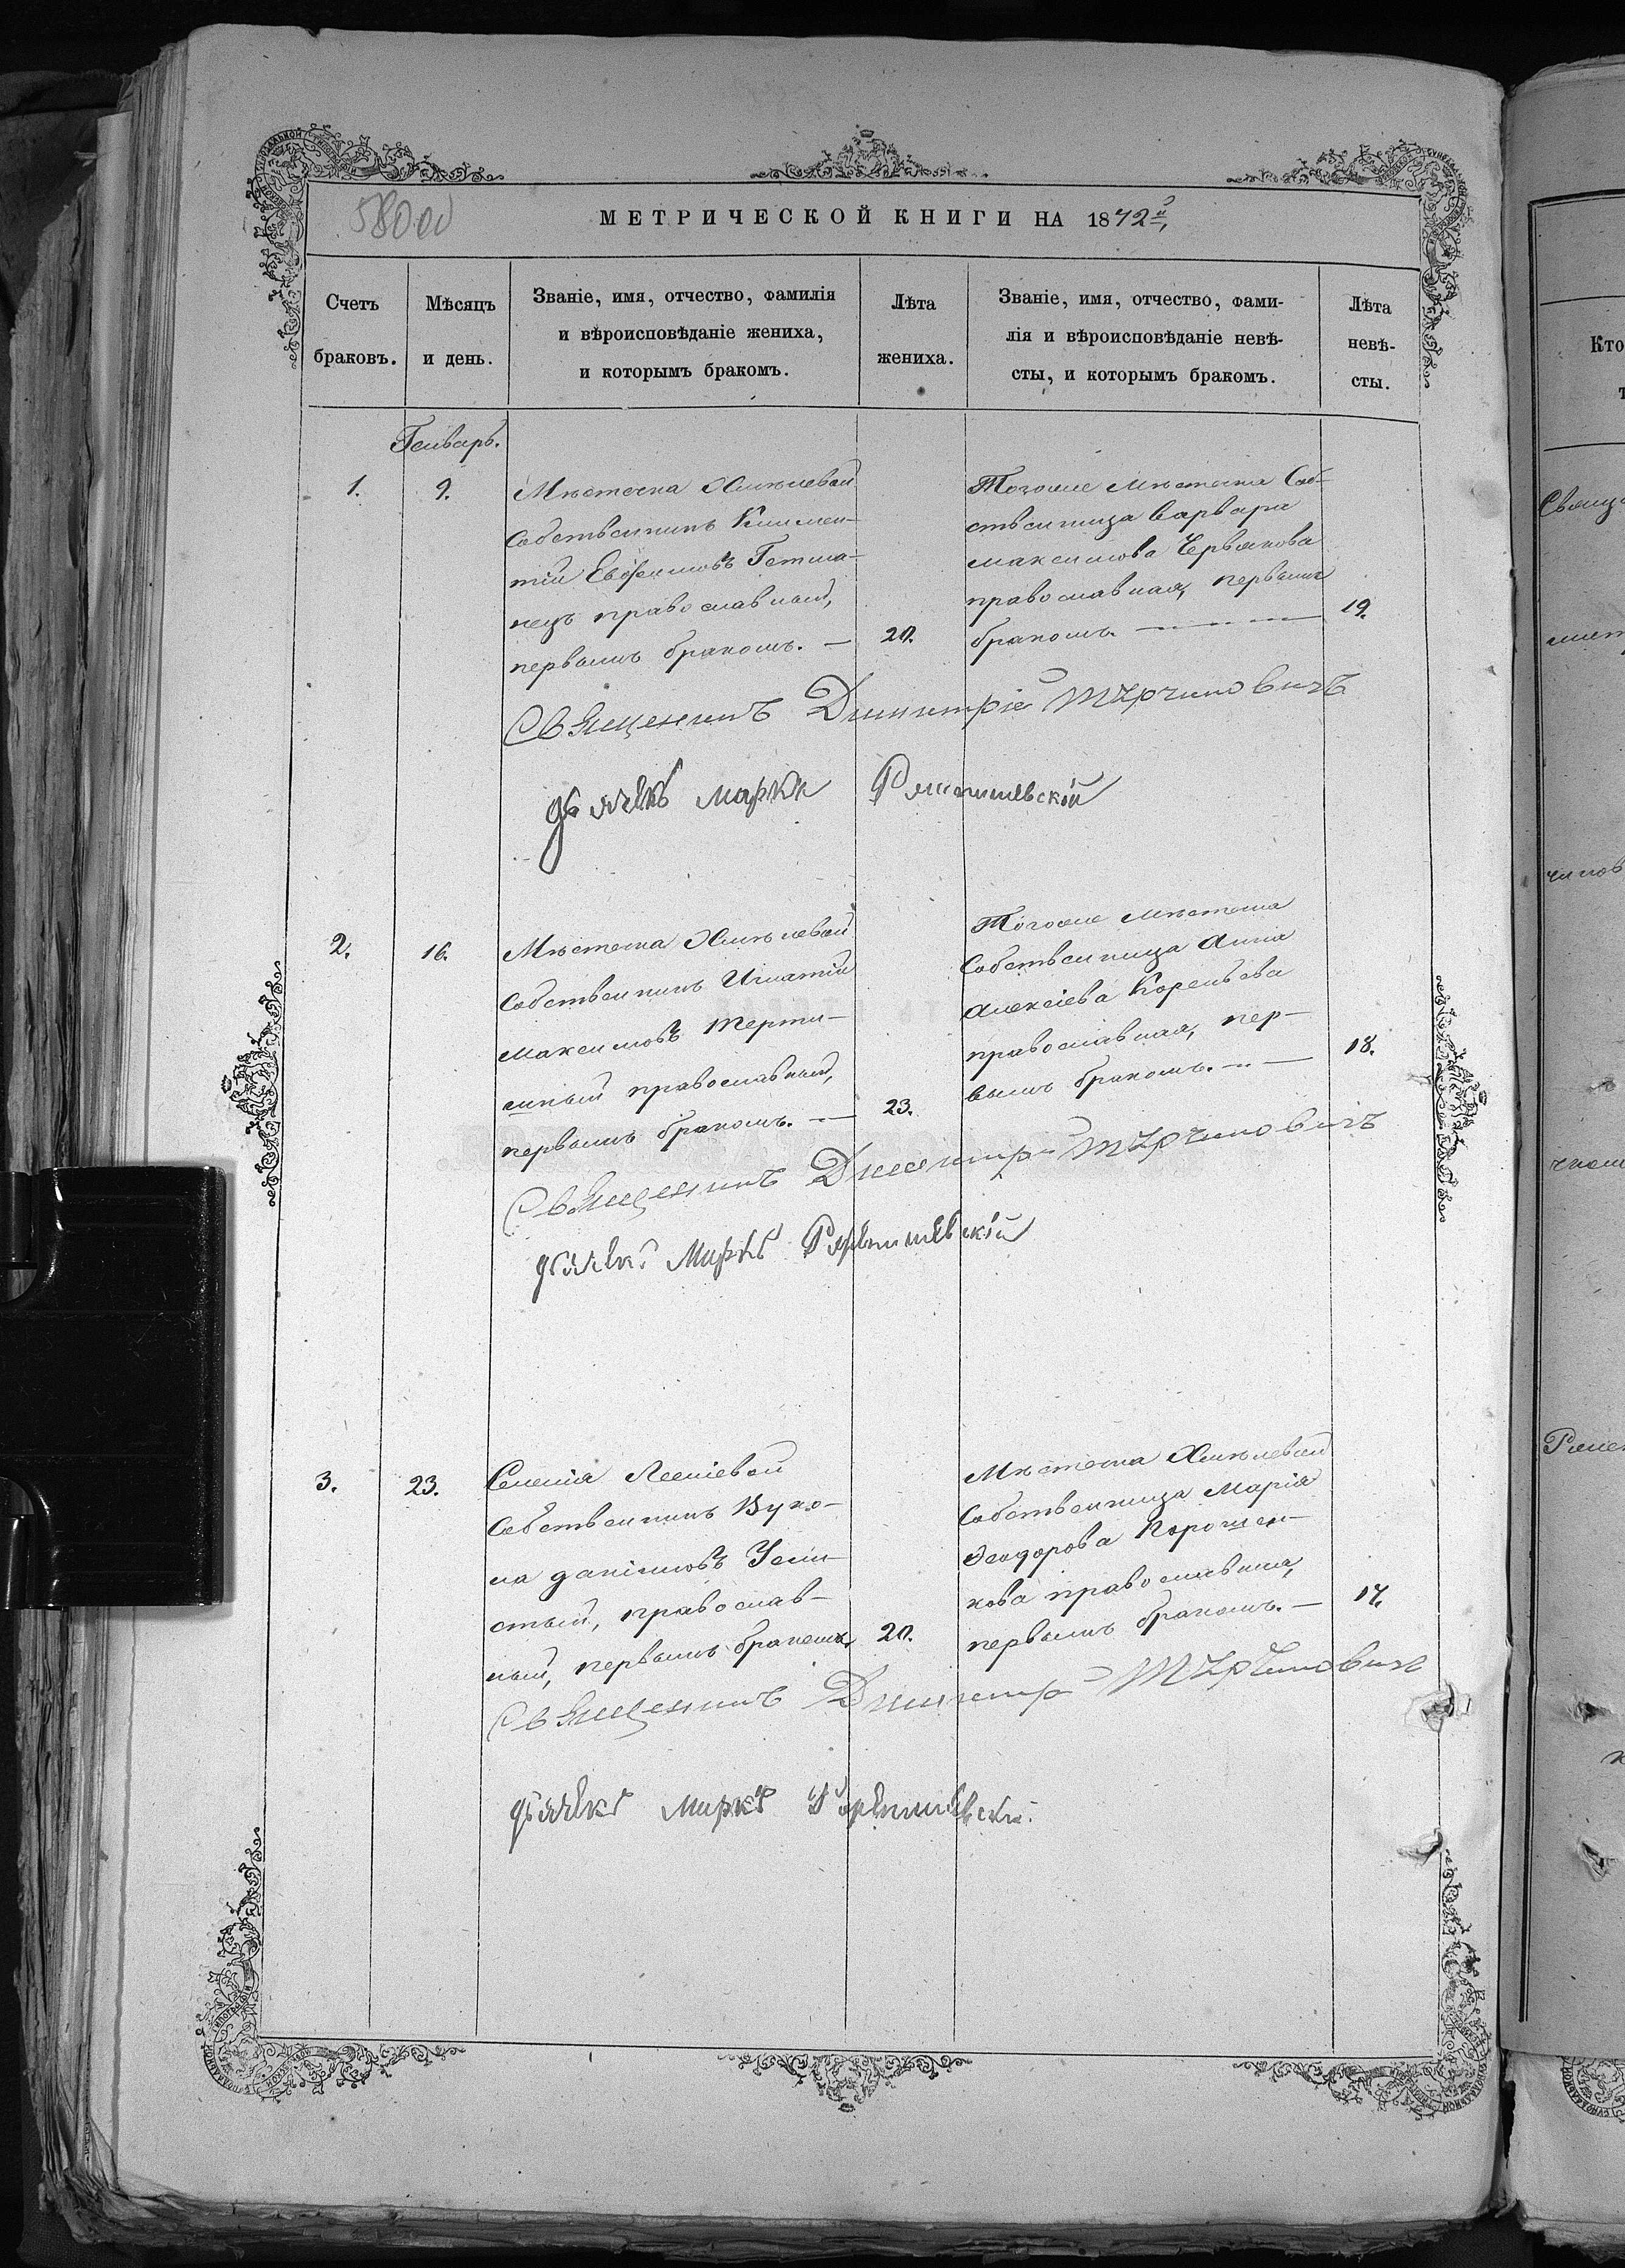 МЕТРИЧЕСКОЙ КНИГИ НА 1872й
Счетъ браковъ.
Мѣсяцъ и день.
Званіе, имя, отчество, фамилія
и вѣроисповѣданіе жениха,
и которымъ бракомъ.
Лѣта жениха.
Званіе, имя, отчество, фами-
лія и вѣроисповѣданіе невѣ-
сты, и которымъ бракомъ.
Лѣта невѣ-
сты.
Генварь.
1.
9.
Мѣстечка Хмѣлевой
собственникъ Климен-
тій Евфимовъ Гетма-
нецъ православный,
первымъ бракомъ. —
20.
Тогоже мѣстечка Соб-
ственница Варвара
Максимова Червякова
православная, первымъ
бракомъ.
19.
Священникъ Димитрій
дьячекъ Марко
2.
16.
Мѣстечка Хмѣлевой
собственникъ Игнатій
Максимовъ Терти-
шный православный,
первымъ бракомъ. —
23.
Тогоже мѣстечка
Собственница Анна
Алексіева Коренѣва
православная, пер-
вымъ бракомъ. —
18.
Священникъ Димитрій
дьячекъ Марко
3.
23.
Селенія
собственникъ Вуко-
ла Данииловъ
стый, православ-
ный, первымъ бракомъ.
20.
Мѣстечка Хмѣлевой
Собственница Марія
Феодорова Порошен-
кова православная,
первымъ бракомъ. —
17.
Священникъ Димитрій
дьячекъ Марко
Кто